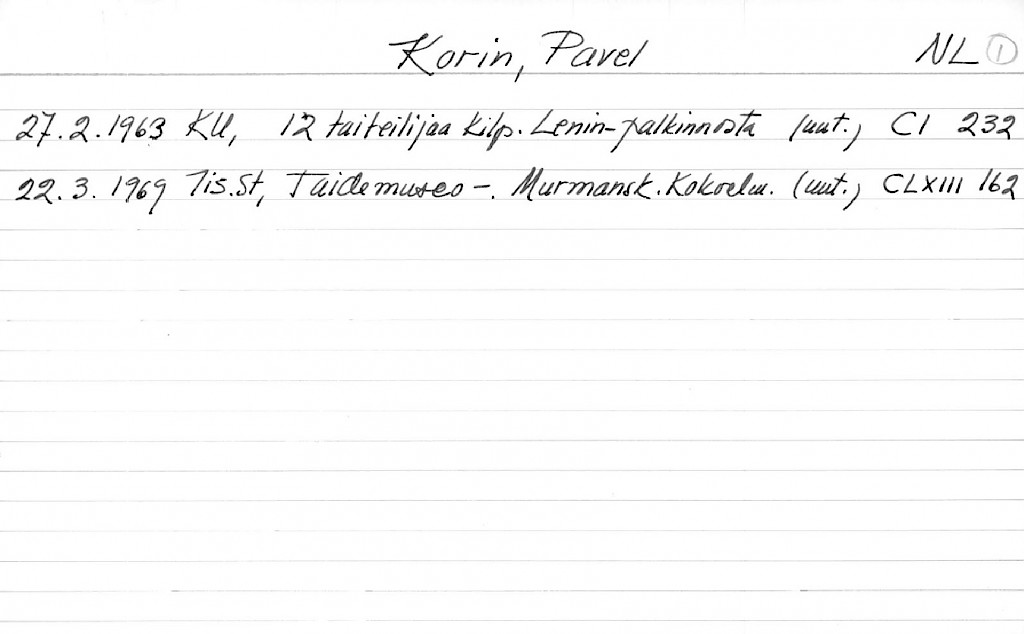 Korin, Pavel NL 1
27.2.1963 KU, 12 taiteilijaa kilp. Lenin-palkinnosta (uut.) CI 232
22.3.1969 Tis.St, Taidemuseo -. Murmansk. Kokoelm. (uut.) CLXIII 162